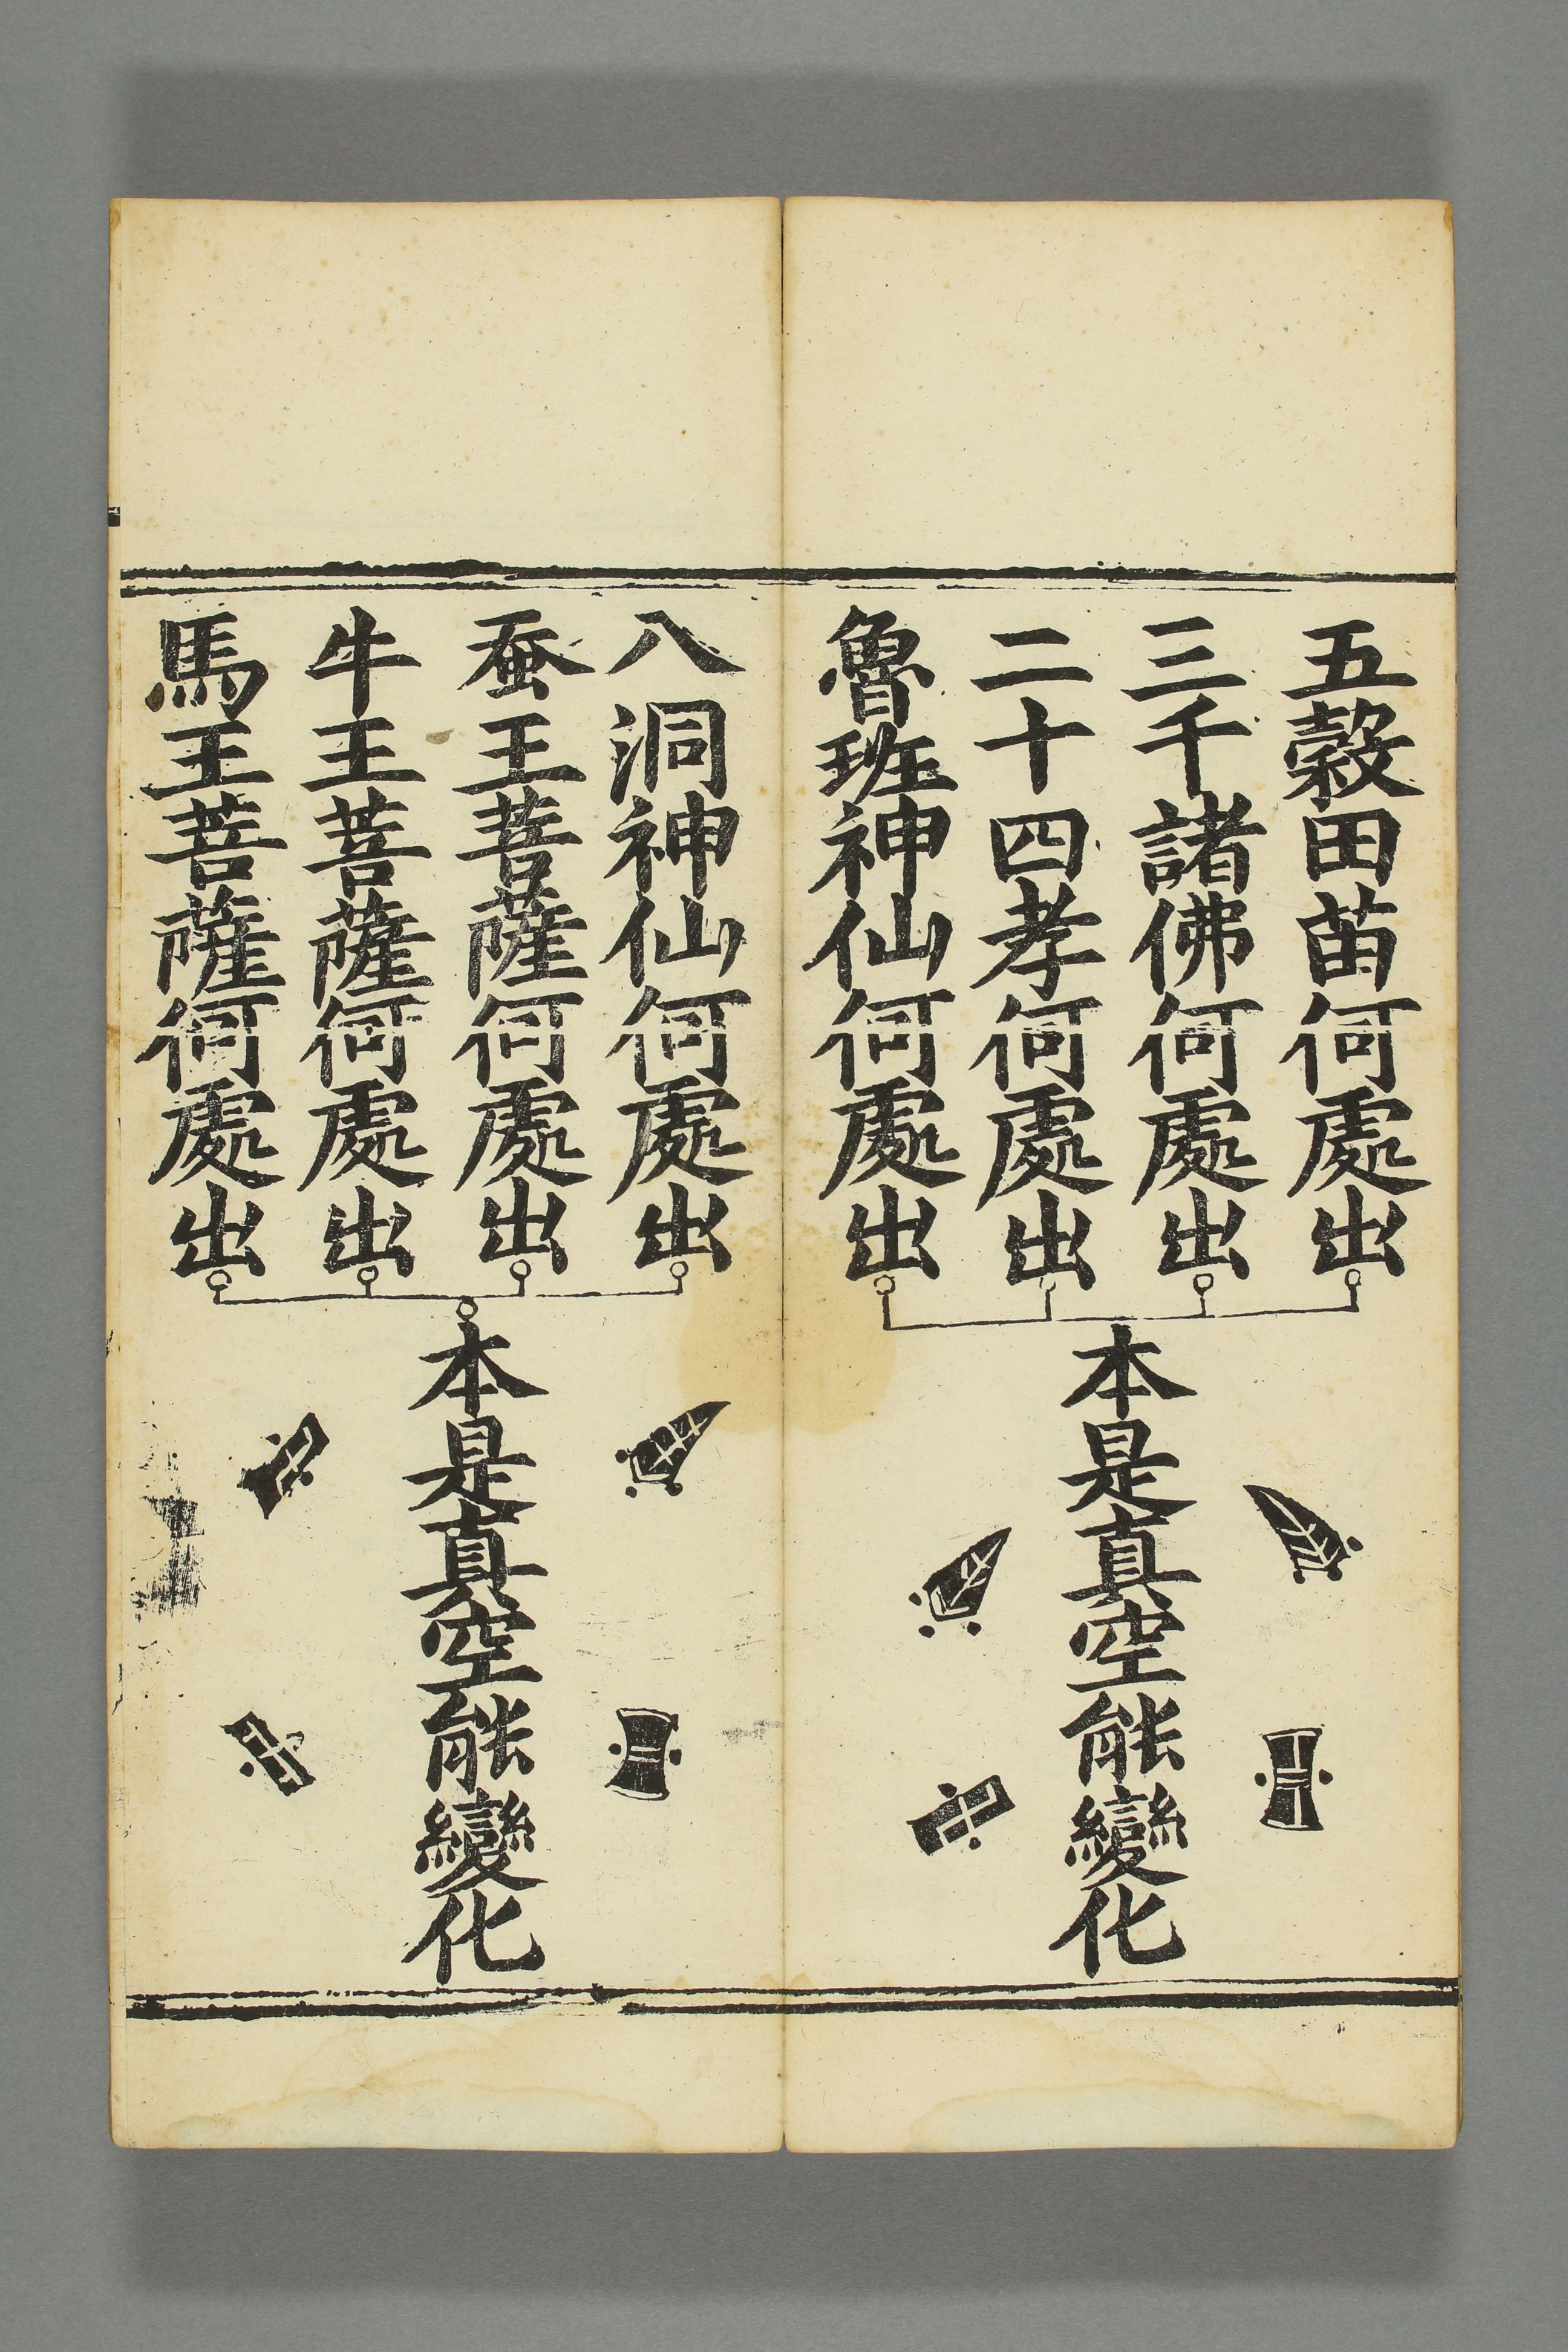 五穀田苗何處出
三千諸佛何處出
二十四孝何處出
魯班神仙何處出
本是真空能變化
八洞神仙何處出
蚕王菩薩何處出
牛王菩薩何處出
馬王菩薩何處出
本是真空能變化